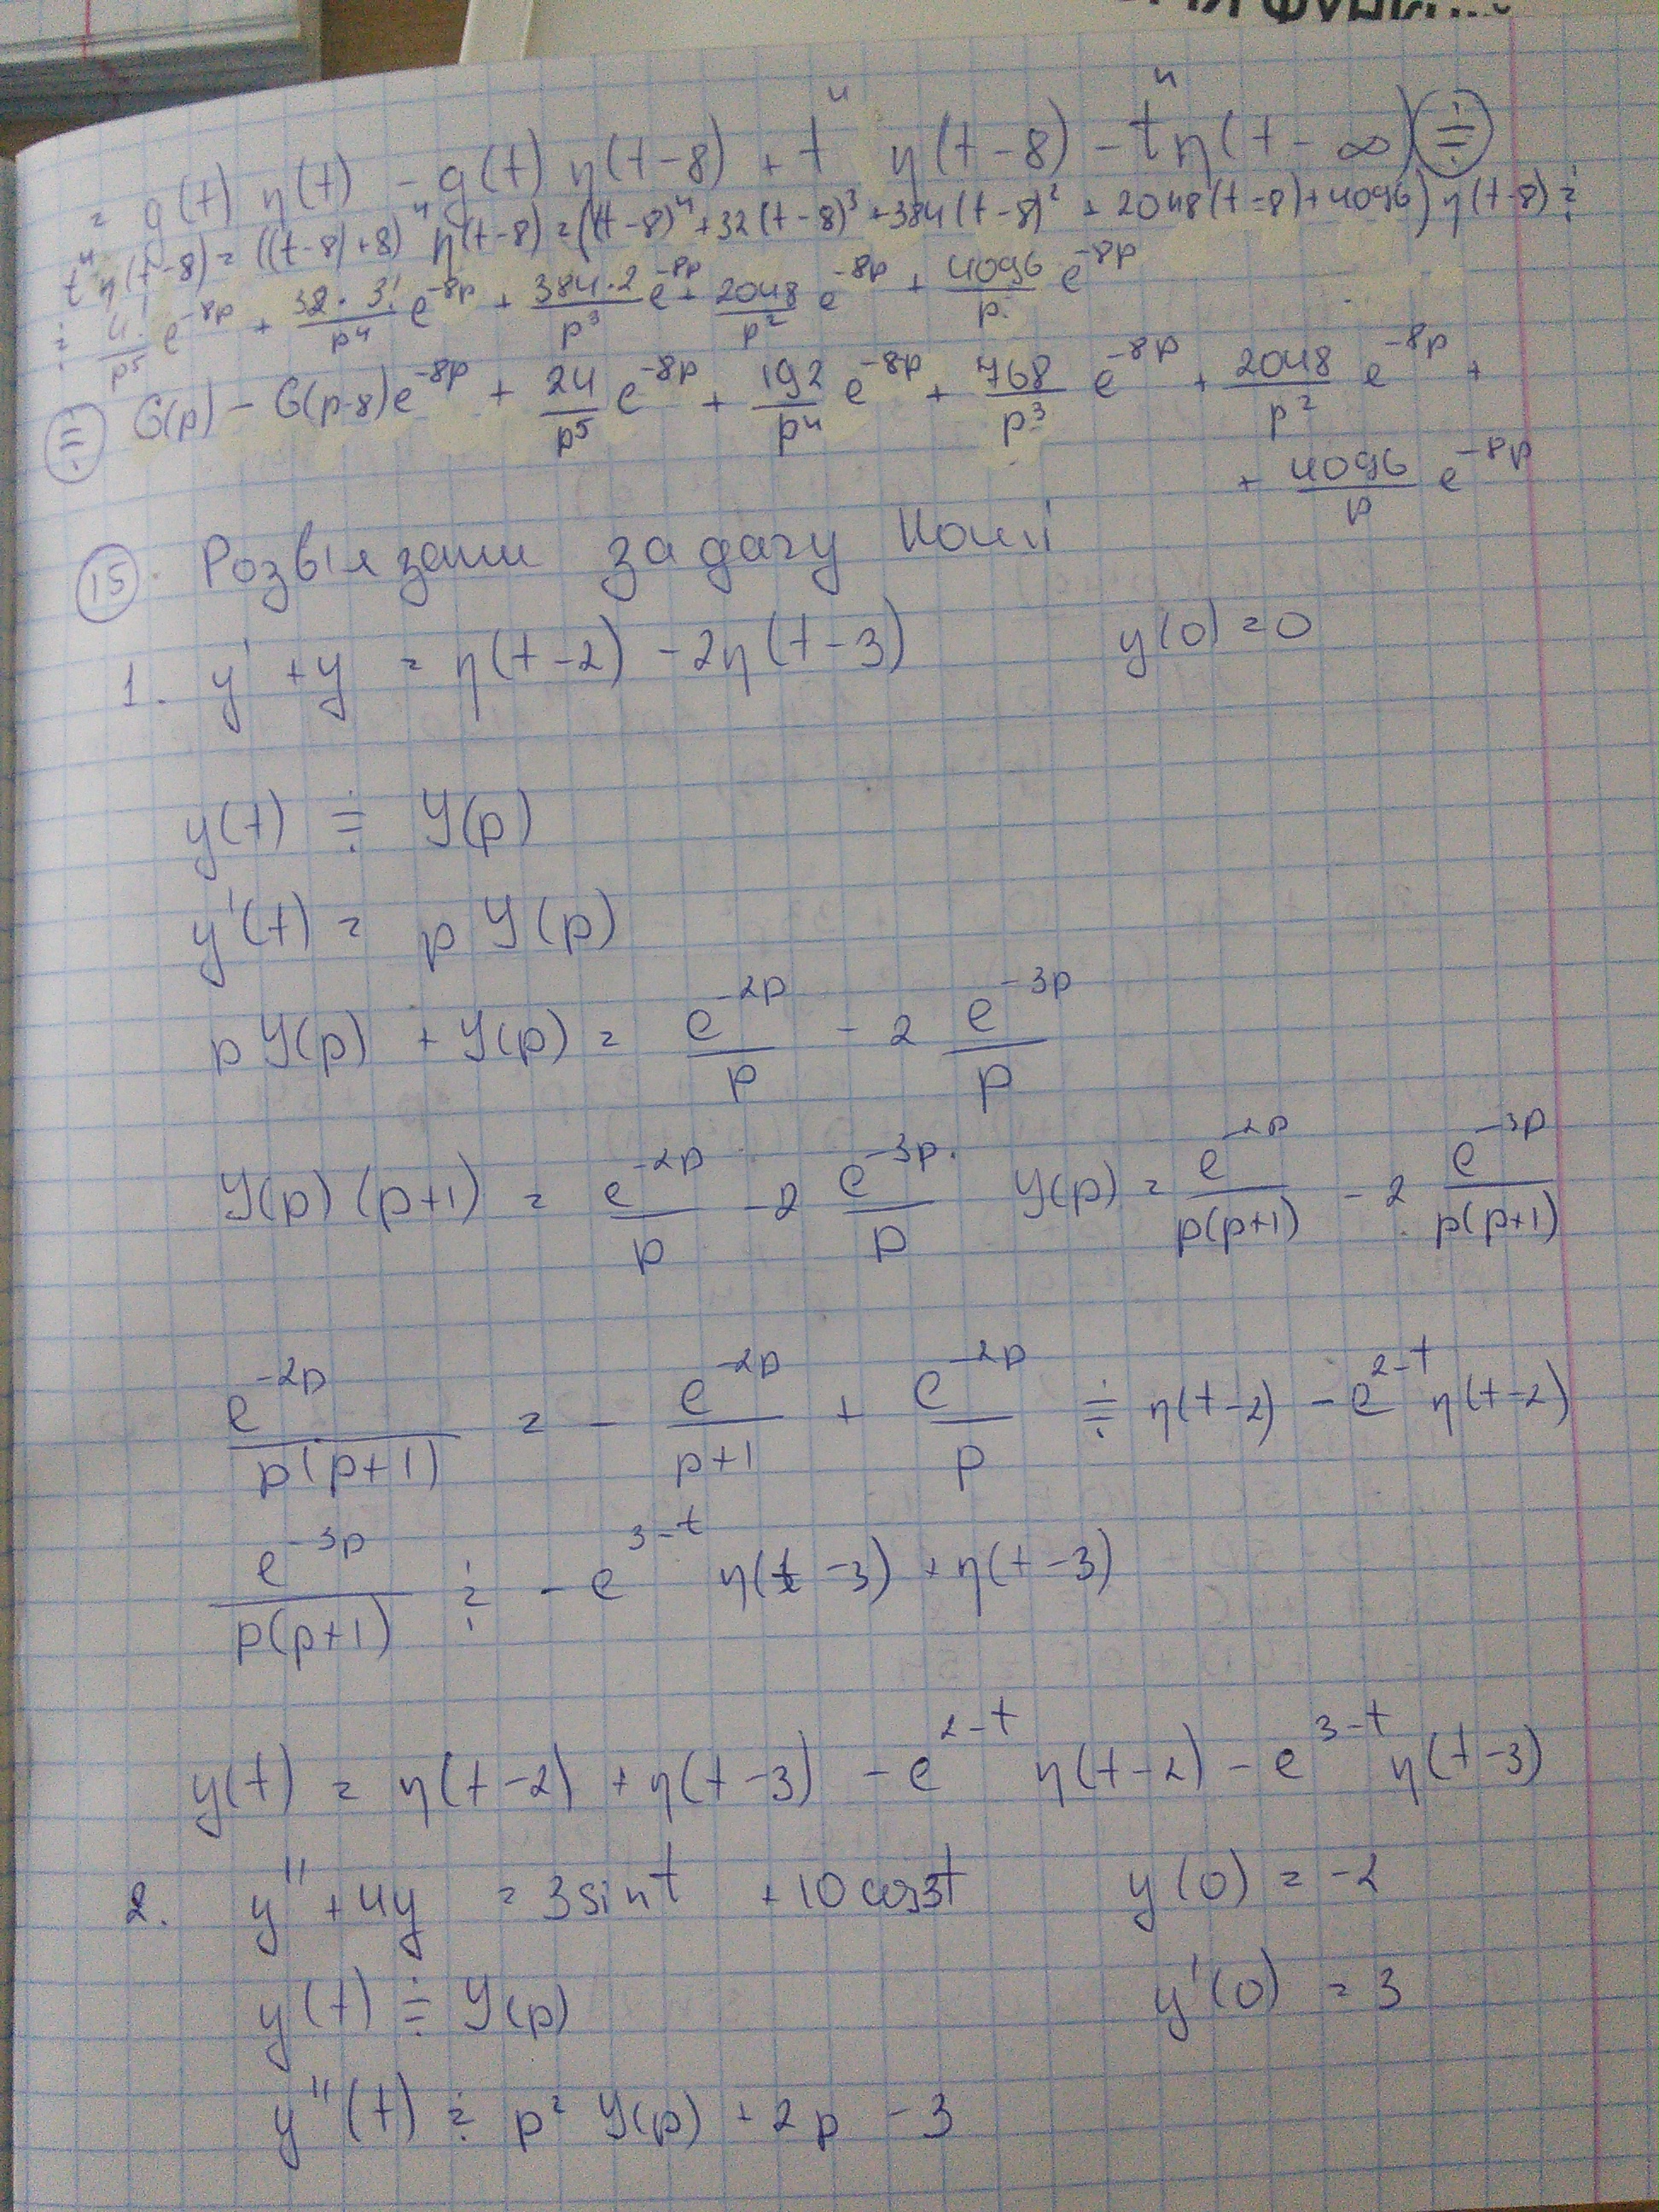 = g(t) η(t) - g(t) η(t-8) + t⁴ η(t-8) - t⁴η(t-∞) ≑
t⁴ η(t-8) = ((t-8)+8)⁴ η(t-8) = ((t-8)⁴ + 32(t-8)³ + 384(t-8)² + 2048(t-8) + 4096) η(t-8) ≑
≑ 4!/p⁵ e^(-8p) + 32·3!/p⁴ e^(-8p) + 384·2/p³ e^(-8p) + 2048/p² e^(-8p) + 4096/p e^(-8p)
≑ G(p) - G(p-8)e^(-8p) + 24/p⁵ e^(-8p) + 192/p⁴ e^(-8p) + 768/p³ e^(-8p) + 2048/p² e^(-8p) +
+ 4096/p e^(-8p)
15. Розв'язати задачу Коші
1. y' + y = η(t-2) - 2η(t-3) y(0) = 0
y(t) ≑ Y(p)
y'(t) = p Y(p)
p Y(p) + Y(p) = e^(-2p)/p - 2 e^(-3p)/p
Y(p) (p+1) = e^(-2p)/p - 2 e^(-3p)/p Y(p) = e^(-2p)/(p(p+1)) - 2 e^(-3p)/(p(p+1))
e^(-2p)/(p(p+1)) = - e^(-2p)/(p+1) + e^(-2p)/p ≑ η(t-2) - e^(2-t) η(t-2)
e^(-3p)/(p(p+1)) ≑ - e^(3-t) η(t-3) + η(t-3)
y(t) = η(t-2) + η(t-3) - e^(2-t) η(t-2) - e^(3-t) η(t-3)
2. y'' + 4y = 3sint + 10cos3t y(0) = -2
y(t) ≑ Y(p) y'(0) = 3
y''(t) ≑ p² Y(p) + 2p - 3